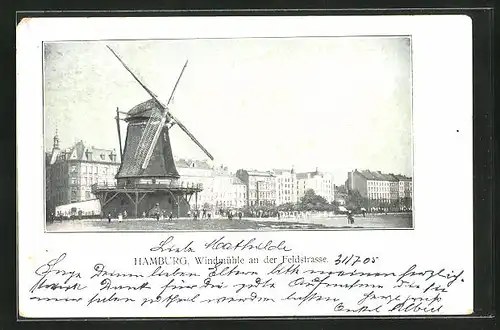 Liebe Mathilde
HAMBURG, Windmühle an der Feldstrasse. 31/7 05
Deinen lieben Eltern bitte meinen herzlich
Dank für die gute Aufnahme die sie
mir haben werden lassen. herzl.
Onkel Albert